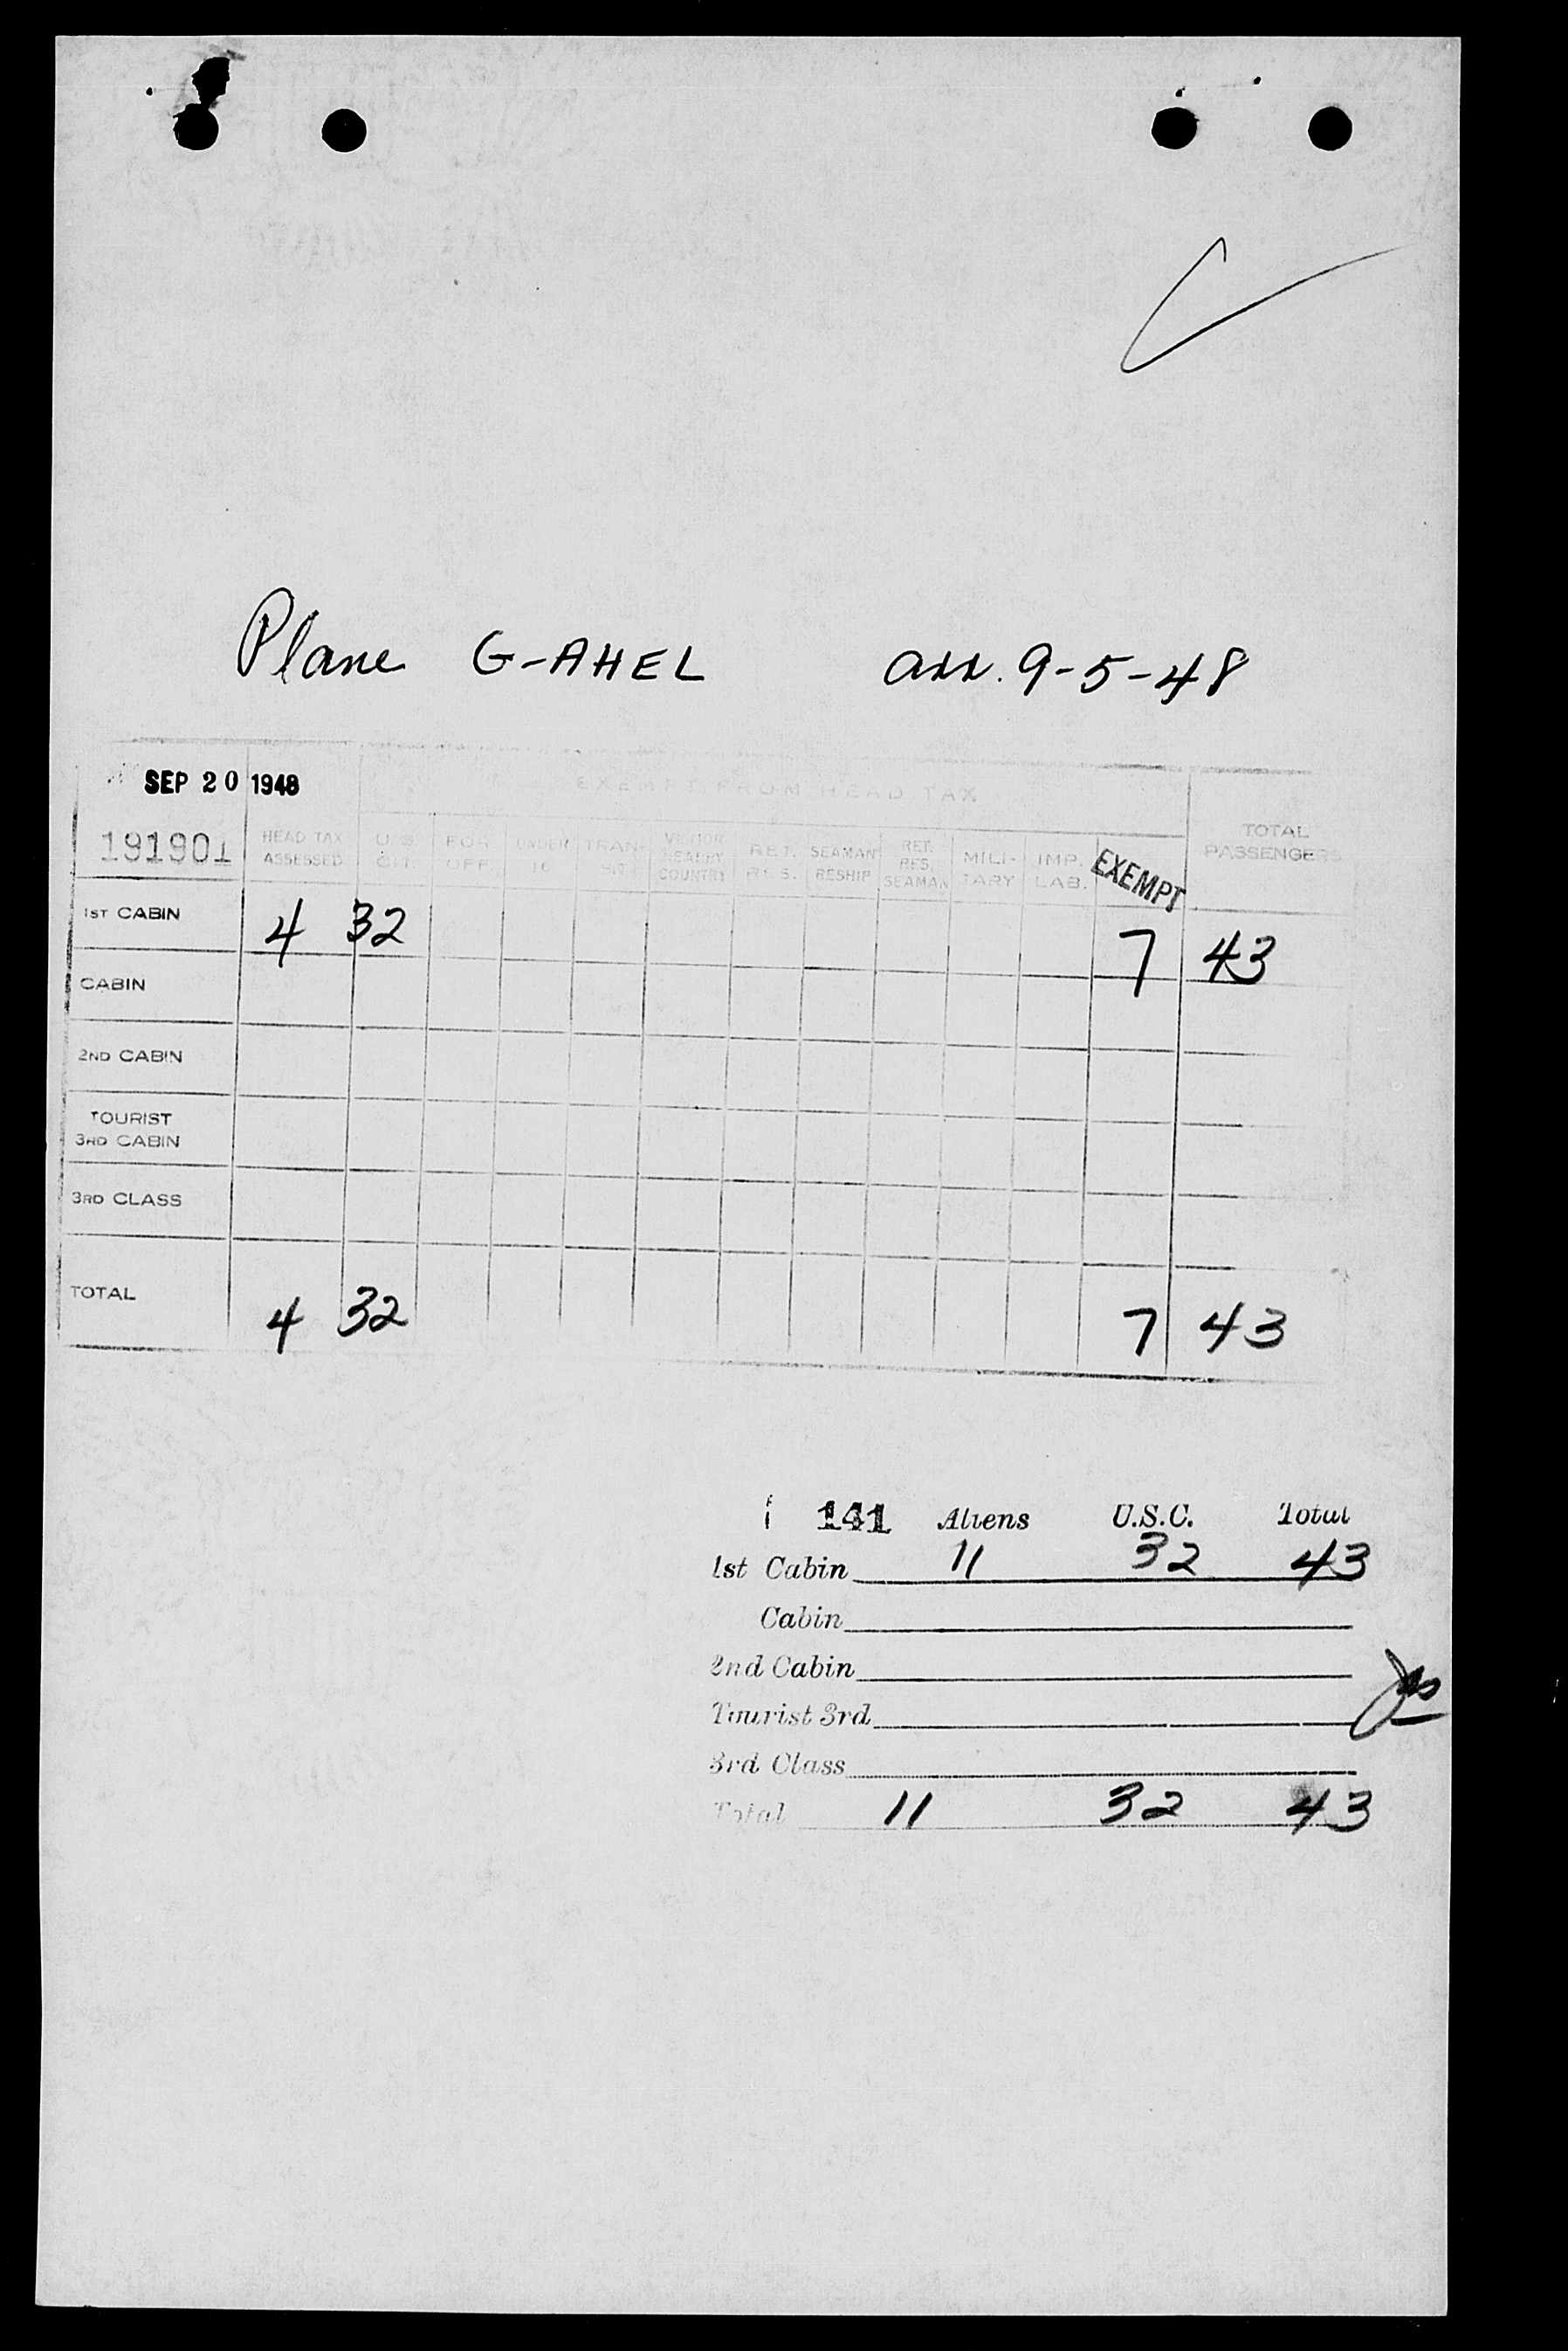 Plane G-AHEL arr. 9-5-48
SEP 20 1948
EXEMPT FROM HEAD TAX
191901
HEAD TAX ASSESSED
U.S. CIT.
FOR OFF
UNDER 16
TRAN-
COUNTRY
RET. RES.
SEAMAN RESHIP
RET. RES. SEAMAN
MILI- TARY
IMP. LAB.
EXEMPT
TOTAL PASSENGERS
1ST CABIN 4 32 7 43
CABIN
2ND CABIN
TOURIST
3RD CABIN
3RD CLASS
TOTAL 4 32 7 43
141 Aliens U.S.C. Total
1st Cabin 11 32 43
Cabin
2nd Cabin
Tourist 3rd
3rd Class
Total 11 32 43